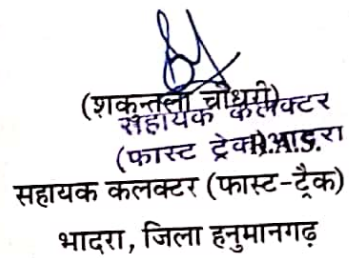 (शकुन्तला चौधरी)
सहायक कलक्टर
(फास्ट ट्रेक) भादरा
R.A.S.
सहायक कलक्टर (फास्ट-ट्रैक)
भादरा, जिला हनुमानगढ़